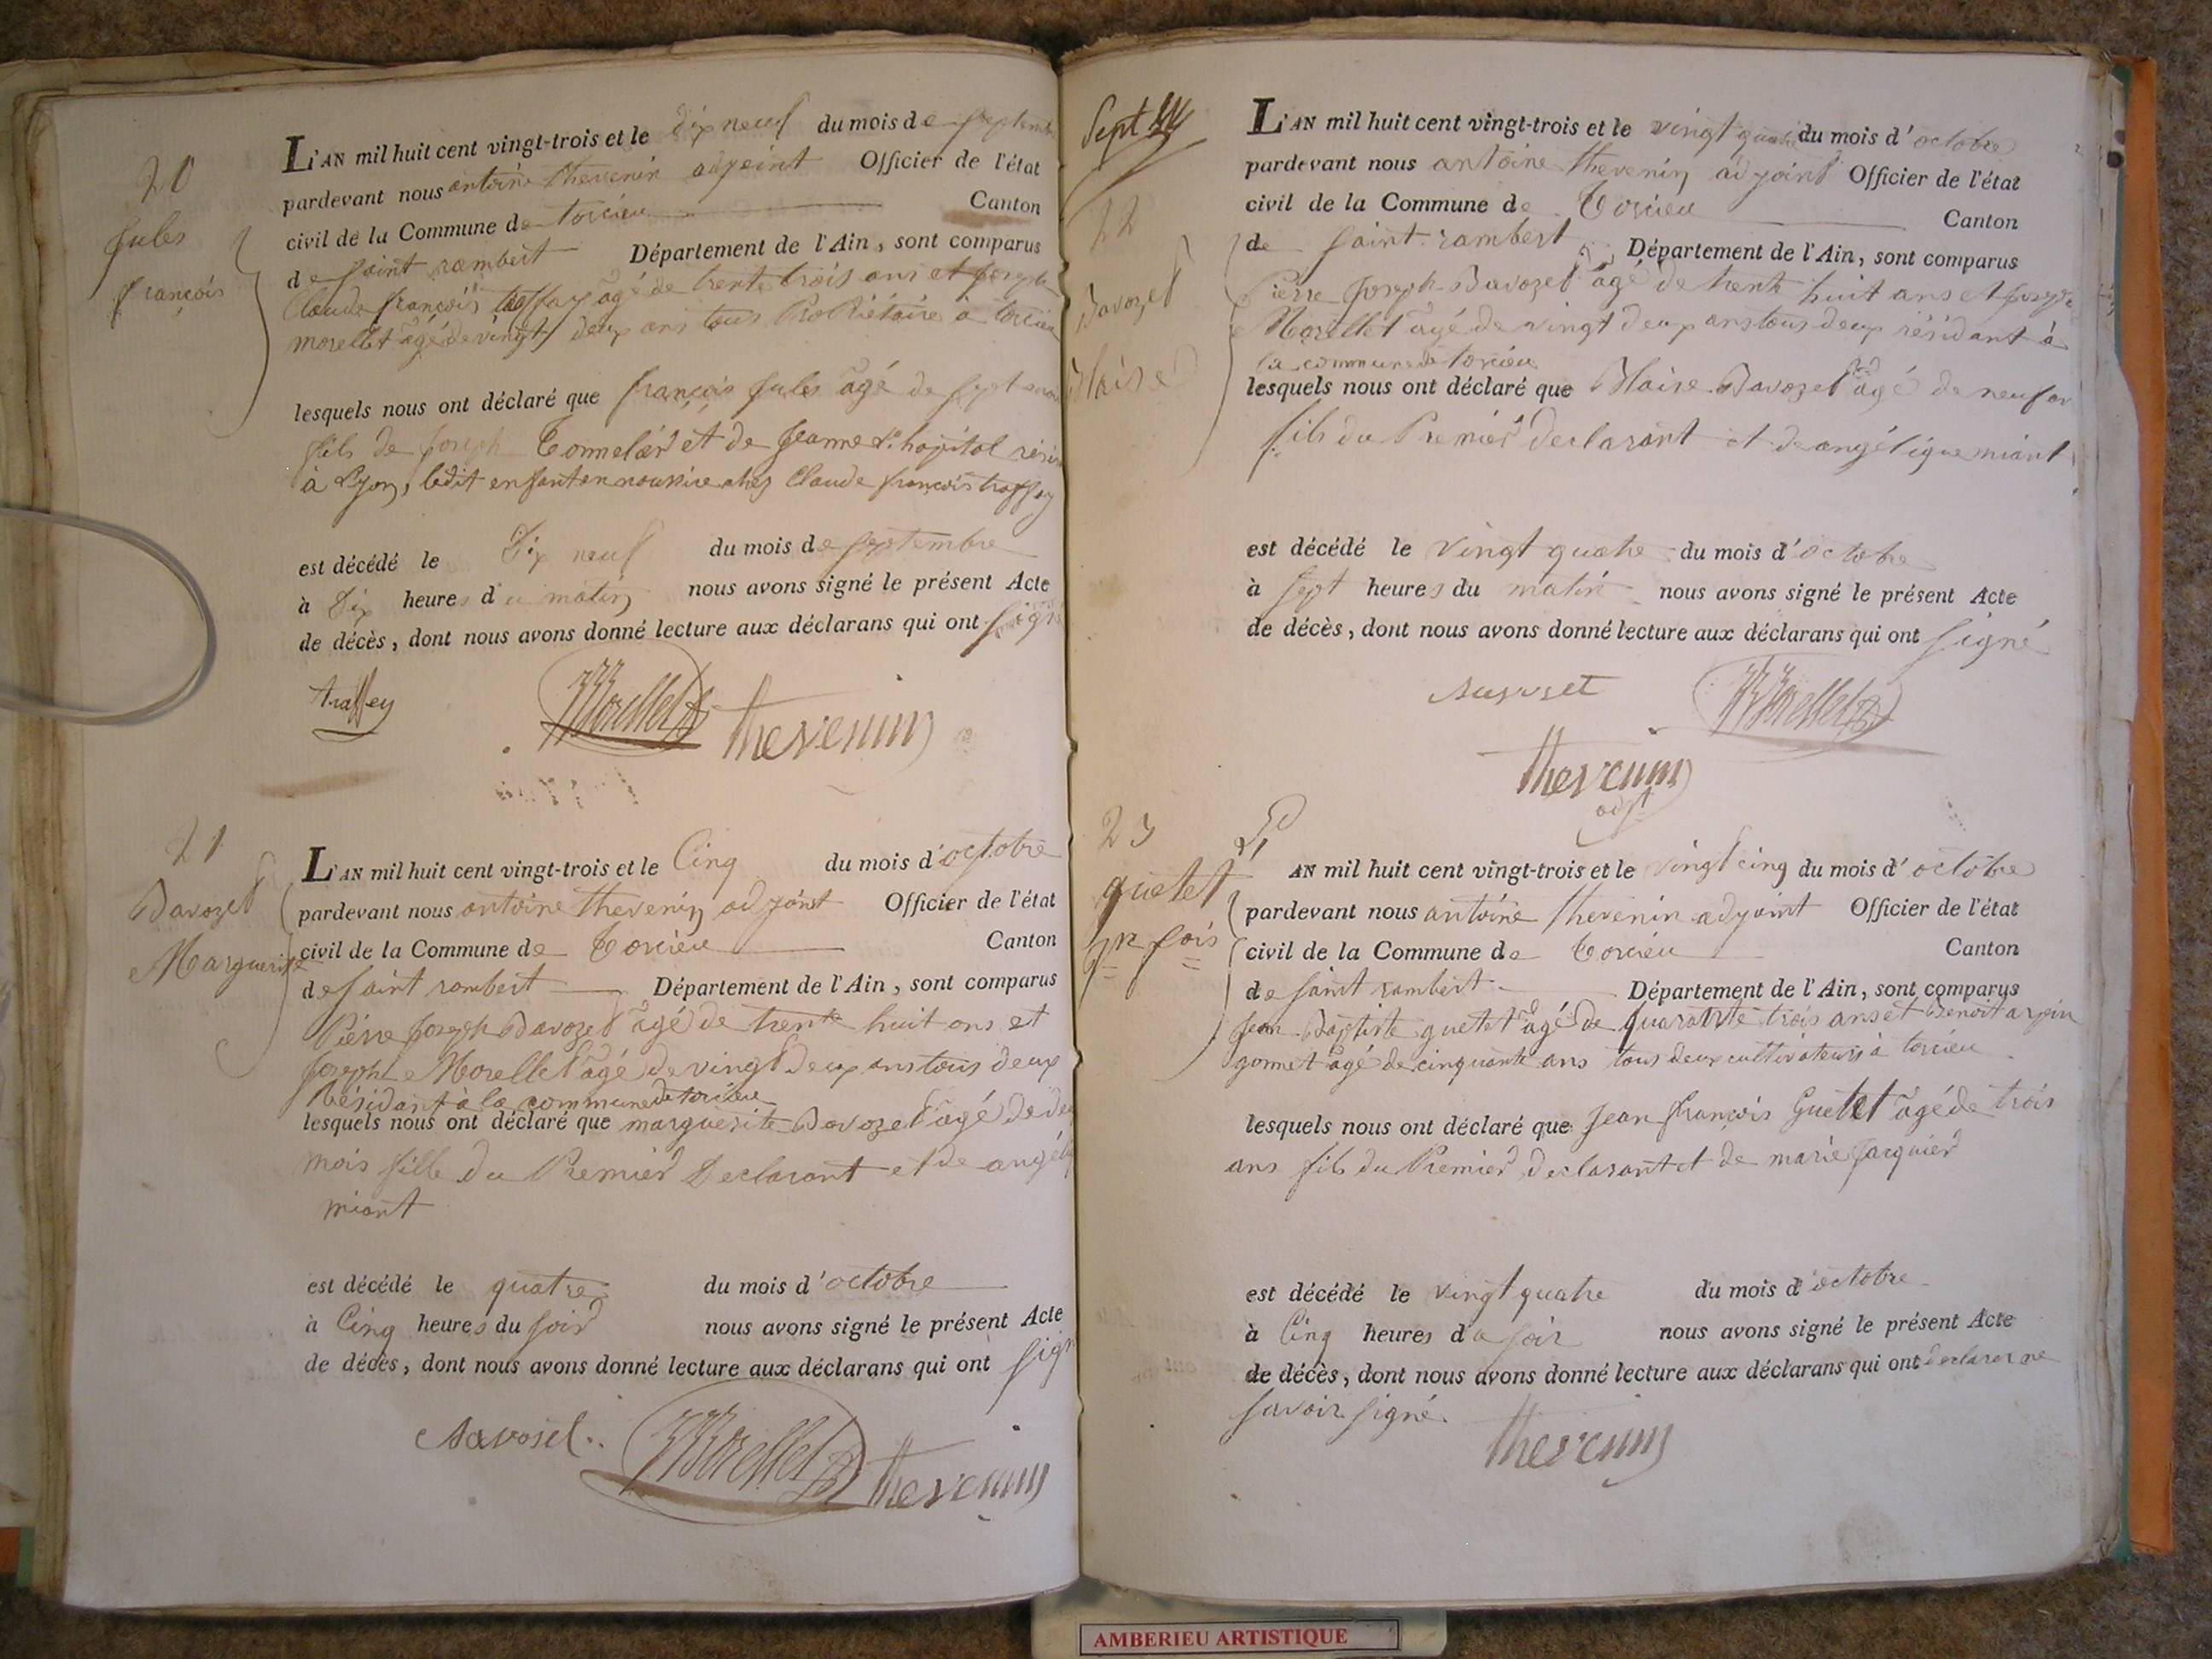 20
Jules
françois
L'AN mil huit cent vingt-trois et le dix neuf du mois de septembre
pardevant nous antoine thevenin adjoint Officier de l'état
civil de la Commune de torcieu Canton
de saint rambert Département de l'Ain, sont comparus
Claude françois traffay agé de trente trois ans et joseph
morellet agé de vingt deux ans tous Propriétaire à torcieu
lesquels nous ont déclaré que françois jules agé de sept
fils de joseph et de jeanne l'hopital
à Lyon, ledit enfant en nourrice chez Claude françois traffey
est décédé le Dix neuf du mois de septembre
à Dix heures du matin nous avons signé le présent Acte
de décès, dont nous avons donné lecture aux déclarans qui ont signé
traffey Morellet thevenin
21
Davozet
Marguerite
L'AN mil huit cent vingt-trois et le Cinq du mois d'octobre
pardevant nous antoine thevenin adjoint Officier de l'état
civil de la Commune de torcieu Canton
de saint rambert Département de l'Ain, sont comparus
Pierre joseph Davozet agé de trente huit ans et
joseph Morellet agé de vingt deux ans tous deux
résidant à la commune de torcieu
lesquels nous ont déclaré que marguerite Davozet agé de
mois fille du Premier Declarant et de
miant
est décédé le quatre du mois d'octobre
à Cinq heures du soir nous avons signé le présent Acte
de décès, dont nous avons donné lecture aux déclarans qui ont sign
Davoset Morellet thevenin
Sept
22
Davozet
Blaise
L'AN mil huit cent vingt-trois et le vingt quatre du mois d'octobre
pardevant nous antoine thevenin adjoint Officier de l'état
civil de la Commune de torcieu Canton
de saint rambert Département de l'Ain, sont comparus
Pierre joseph Davozet agé de trente huit ans et joseph
Morellet agé de vingt deux ans tous deux résidant à
la commune de torcieu
lesquels nous ont déclaré que Blaise Davozet agé de neuf an
fils du Premier declarant et de angélique miant
est décédé le vingt quatre du mois d'octobre
à sept heures du matin nous avons signé le présent Acte
de décès, dont nous avons donné lecture aux déclarans qui ont signé
Davoset Morellet
thevenin
adjt
23
guetet
jn fois
L'AN mil huit cent vingt-trois et le vingt cinq du mois d'octobre
pardevant nous antoine thevenin adjoint Officier de l'état
civil de la Commune de torcieu Canton
de saint rambert Département de l'Ain, sont comparus
jean Baptiste guetet agé de quarante trois ans et Benoit arpin
gonnet agé de cinquante ans tous deux cultivateurs à torcieu
lesquels nous ont déclaré que jean françois Guetet agé de trois
ans fils du Premier declarant et de marie jarquier
est décédé le vingt quatre du mois d'octobre
à Cinq heures du soir nous avons signé le présent Acte
de décès, dont nous avons donné lecture aux déclarans qui ont declarer ne
savoir signé
thevenin
AMBERIEU ARTISTIQUE